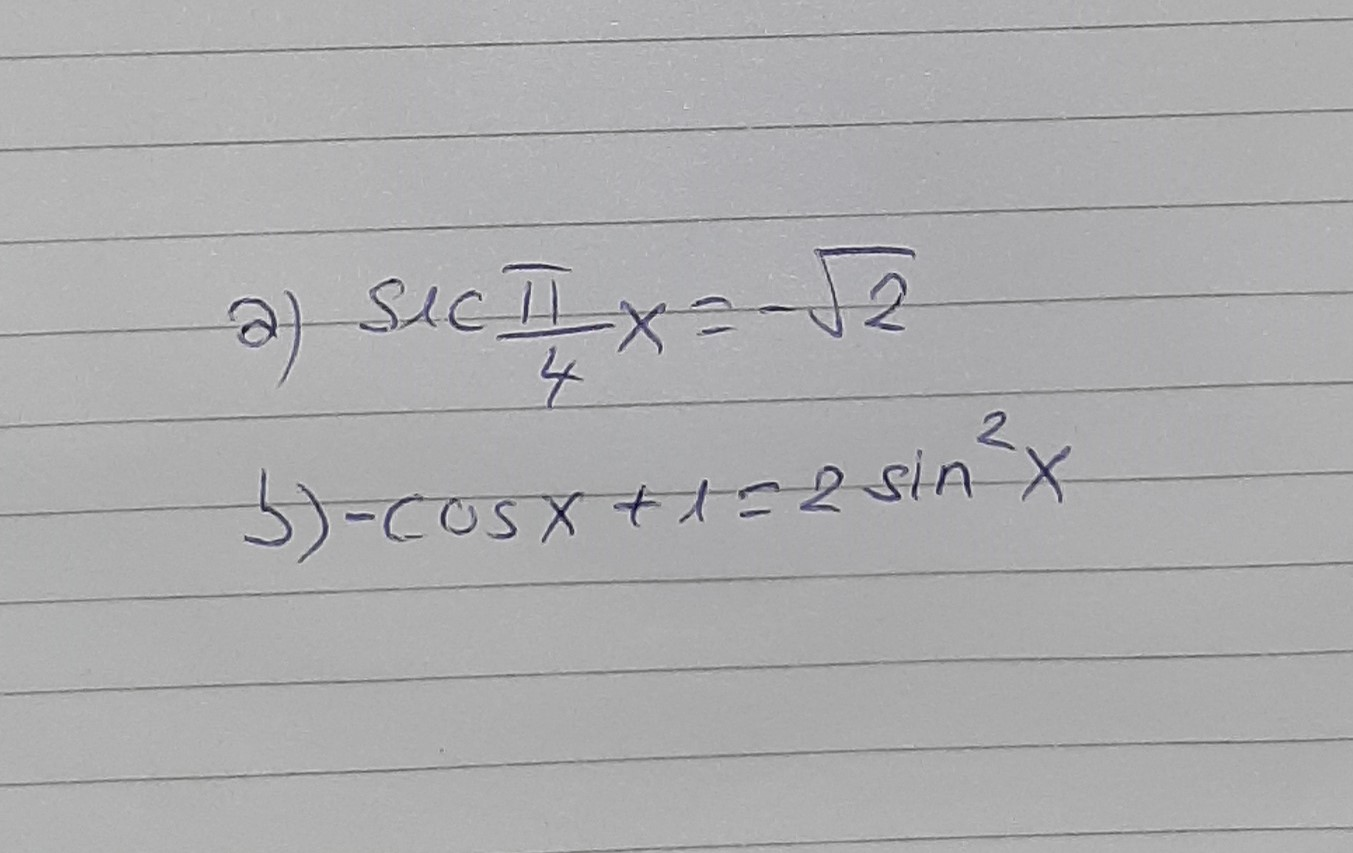 a) sec π/4 x = -√2
b) -cosx + 1 = 2 sin²x